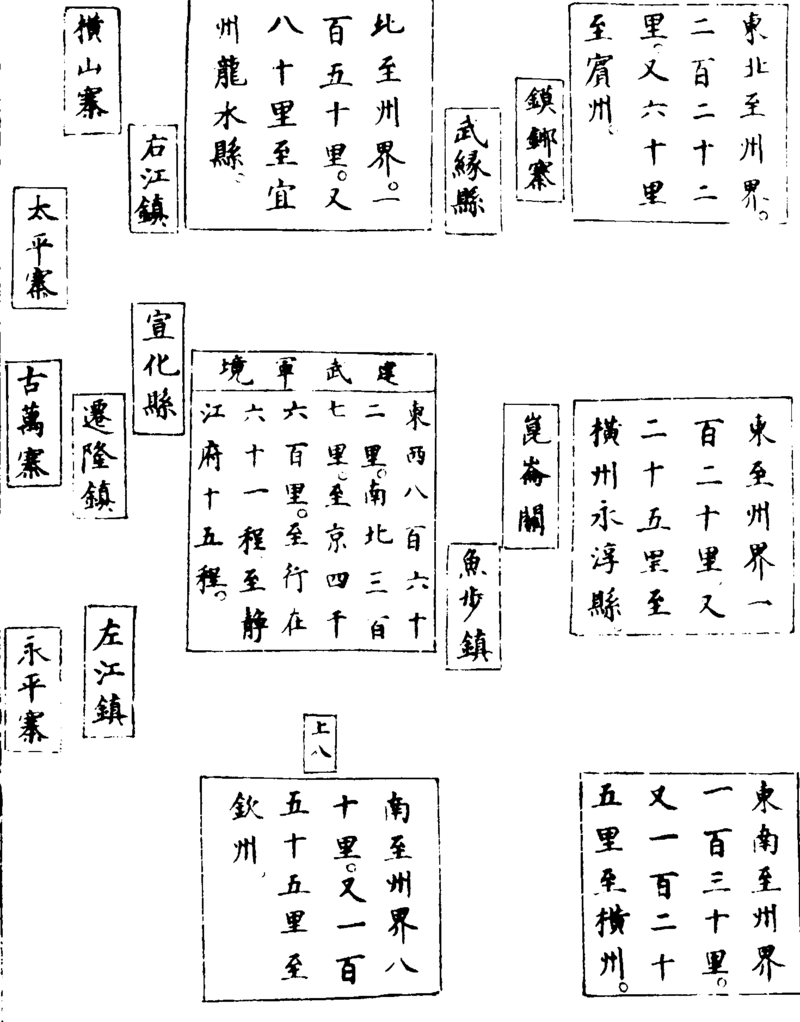 東北至州界。
二百二十二
里。又六十里
至賓州。
鎮鎁寨
武緣縣
北至州界。一
百五十里。又
八十里至宜
州龍水縣、
右江鎮
橫山寨
太平寨
東至州界一
百二十里、又
二十五里至
橫州永淳縣
崑崙關
魚步鎮
建武軍境
東西八百六十
二里。南北三百
七里。至京四千
六百里。至行在
六十一程至靜
江府十五程。
宣化縣
遷隆鎮
古萬寨
左江鎮
永平寨
東南至州界
一百三十里。
又一百二十
五里至橫州。
上八
南至州界八
十里。又一百
五十五里至
欽州、